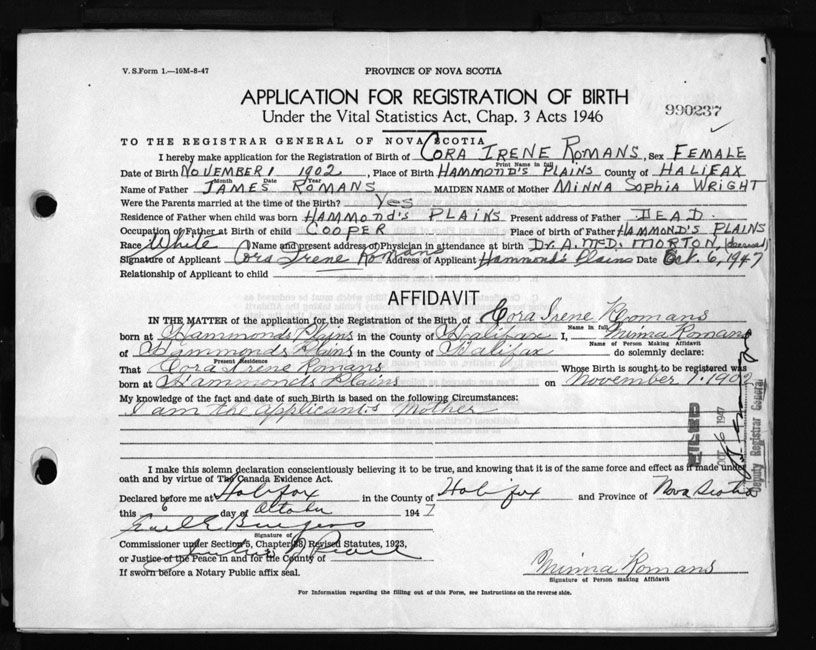 V. S. Form 1.—10M-8-47
PROVINCE OF NOVA SCOTIA
APPLICATION FOR REGISTRATION OF BIRTH
990237
Under the Vital Statistics Act, Chap. 3 Acts 1946
TO THE REGISTRAR GENERAL OF NOVA SCOTIA
I hereby make application for the Registration of Birth of CORA IRENE ROMANS, Sex FEMALE
Print Name in full
Date of Birth NOVEMBER 1 1902, Place of Birth HAMMOND'S PLAINS County of HALIFAX
Month Date Year
Name of Father JAMES ROMANS MAIDEN NAME of Mother MINNA SOPHIA WRIGHT
Were the Parents married at the time of Birth? Yes
Residence of Father when child was born HAMMOND'S PLAINS Present address of Father DEAD.
Occupation of Father at Birth of child COOPER Place of birth of Father HAMMOND'S PLAINS
Race White Name and present address of Physician in attendance at birth Dr. A. McD. MORTON, (deceased)
Signature of Applicant Cora Irene Romans Address of Applicant Hammond's Plains Date Oct. 6, 1947
Relationship of Applicant to child
AFFIDAVIT
IN THE MATTER of the application for the Registration of the Birth of Cora Irene Romans
Name in full
born at Hammonds Plains in the County of Halifax I, Minna Romans
Name of Person Making Affidavit
of Hammonds Plains in the County of Halifax do solemnly declare:
Present Residence
That Cora Irene Romans Whose Birth is sought to be registered was
born at Hammonds Plains on November 1. 1902
My knowledge of the fact and date of such Birth is based on the following Circumstances:
I am the applicants Mother
FILED
OCT 6 1947
Deputy Registrar General
I make this solemn declaration conscientiously believing it to be true, and knowing that it is of the same force and effect as if made under
oath and by virtue of The Canada Evidence Act.
Declared before me at Halifax in the County of Halifax and Province of Nova Scotia
this 6 day of October 1947
Earl E Burgess
Signature of
Commissioner under Section 5, Chapter 38, Revised Statutes, 1923,
or Justice of the Peace in and for the County of
If sworn before a Notary Public affix seal.
Minna Romans
Signature of Person making Affidavit
For Information regarding the filling out of this Form, see Instructions on the reverse side.